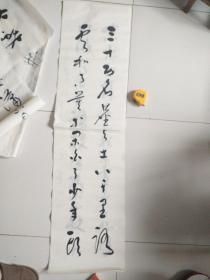 三十功名塵与土八千里路
雲和月莫等閑白了少年頭